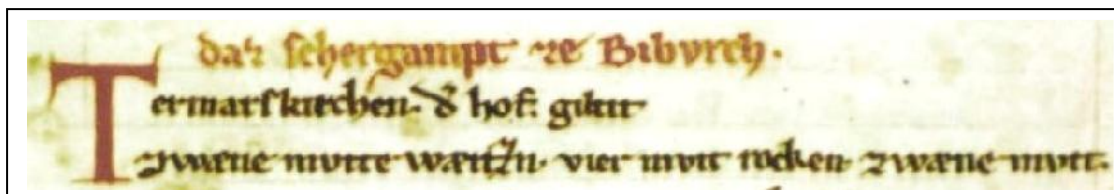 daz schergampt ze Biburch.
Termarskirchen. d̄ hof. giltit
zwæne mvtte wæitzn. vier mvtt rocken. zwæne mvtt.